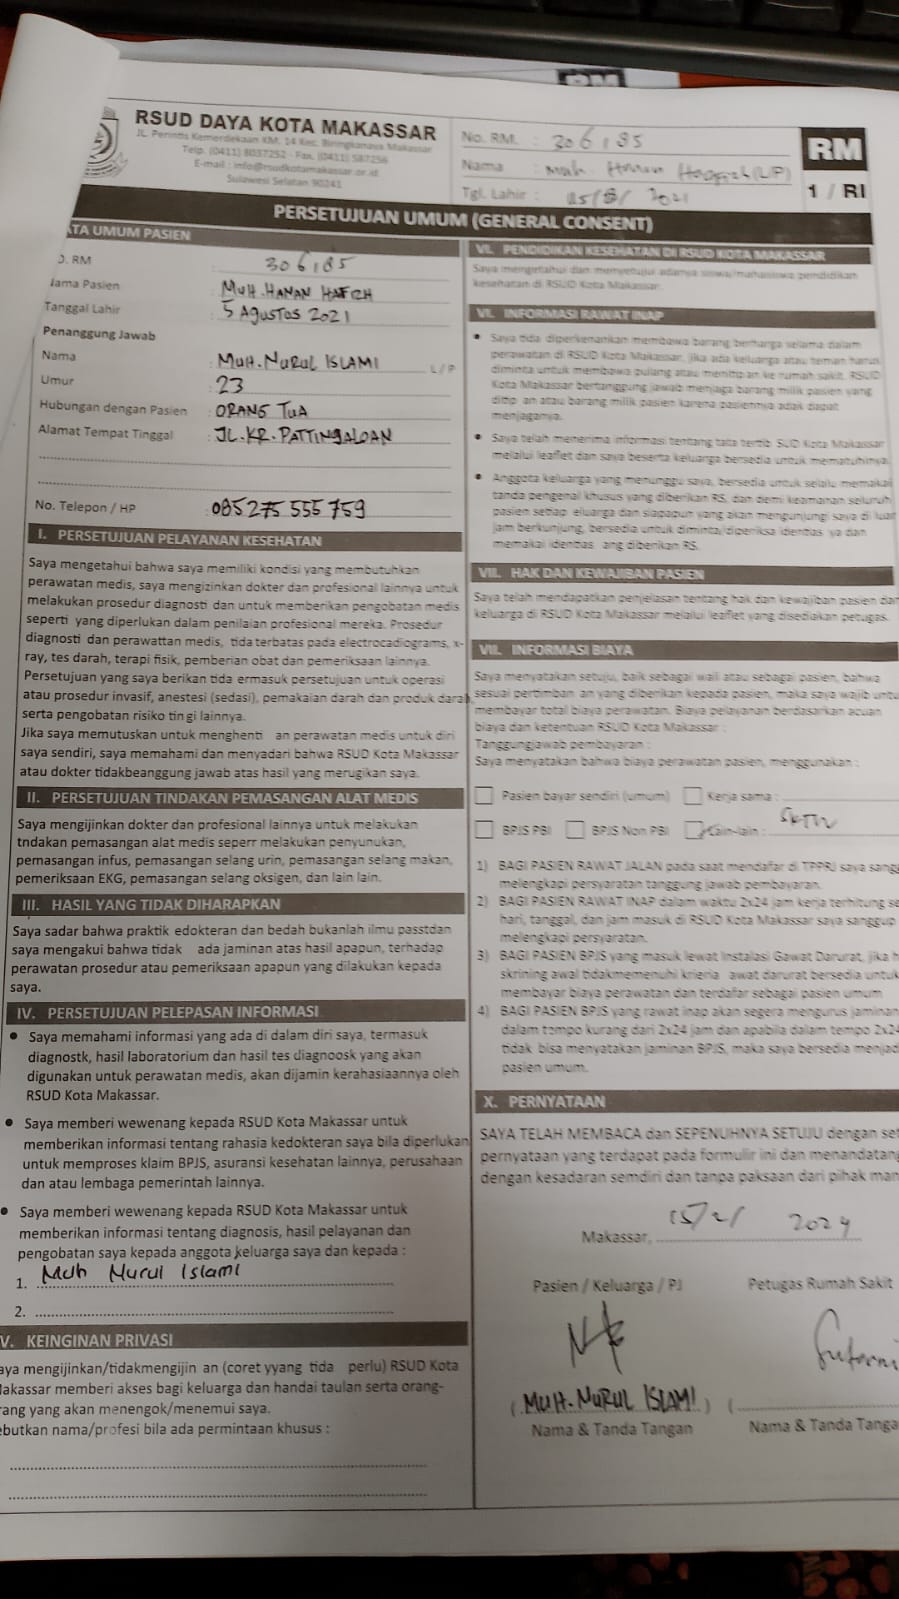 RSUD DAYA KOTA MAKASSAR
JL. Perintis Kemerdekaan KM. 14 Kec. Biringkanaya Makassar
Telp. (0411) 8057252 - Fax. (0411) 587256
E-mail : info@rsudkotamakassar.or.id
Sulawesi Selatan 90241
No. RM. : 306185
Nama : Muh. Hanan (L/P)
Tgl. Lahir : 2021
RM
1 / RI
PERSETUJUAN UMUM (GENERAL CONSENT)
ATA UMUM PASIEN
O. RM : 306185
Nama Pasien : MUH. HANAN HAFIZH
Tanggal Lahir : 5 AGUSTOS 2021
Penanggung Jawab
Nama : MUH. NURUL ISLAMI L / P
Umur : 23
Hubungan dengan Pasien : ORANG TUA
Alamat Tempat Tinggal : JL. KR. PATTINGALOAN
No. Telepon / HP : 085 275 555 759
I. PERSETUJUAN PELAYANAN KESEHATAN
Saya mengetahui bahwa saya memiliki kondisi yang membutuhkan
perawatan medis, saya mengizinkan dokter dan profesional lainnya untuk
melakukan prosedur diagnosti dan untuk memberikan pengobatan medis
seperti yang diperlukan dalam penilaian profesional mereka. Prosedur
diagnosti dan perawattan medis, tida terbatas pada electrocadiograms, x-
ray, tes darah, terapi fisik, pemberian obat dan pemeriksaan lainnya.
Persetujuan yang saya berikan tida ermasuk persetujuan untuk operasi
atau prosedur invasif, anestesi (sedasi), pemakaian darah dan produk darah,
serta pengobatan risiko tin gi lainnya.
Jika saya memutuskan untuk menghenti an perawatan medis untuk diri
saya sendiri, saya memahami dan menyadari bahwa RSUD Kota Makassar
atau dokter tidakbeanggung jawab atas hasil yang merugikan saya.
II. PERSETUJUAN TINDAKAN PEMASANGAN ALAT MEDIS
Saya mengijinkan dokter dan profesional lainnya untuk melakukan
tndakan pemasangan alat medis seperr melakukan penyunukan,
pemasangan infus, pemasangan selang urin, pemasangan selang makan,
pemeriksaan EKG, pemasangan selang oksigen, dan lain lain.
III. HASIL YANG TIDAK DIHARAPKAN
Saya sadar bahwa praktik edokteran dan bedah bukanlah ilmu passtdan
saya mengakui bahwa tidak ada jaminan atas hasil apapun, terhadap
perawatan prosedur atau pemeriksaan apapun yang dilakukan kepada
saya.
IV. PERSETUJUAN PELEPASAN INFORMASI
• Saya memahami informasi yang ada di dalam diri saya, termasuk
diagnostk, hasil laboratorium dan hasil tes diagnoosk yang akan
digunakan untuk perawatan medis, akan dijamin kerahasiaannya oleh
RSUD Kota Makassar.
• Saya memberi wewenang kepada RSUD Kota Makassar untuk
memberikan informasi tentang rahasia kedokteran saya bila diperlukan
untuk memproses klaim BPJS, asuransi kesehatan lainnya, perusahaan
dan atau lembaga pemerintah lainnya.
• Saya memberi wewenang kepada RSUD Kota Makassar untuk
memberikan informasi tentang diagnosis, hasil pelayanan dan
pengobatan saya kepada anggota keluarga saya dan kepada :
1. Muh Nurul Islami
2.
V. KEINGINAN PRIVASI
aya mengijinkan/tidakmengijin an (coret yyang tida perlu) RSUD Kota
Makassar memberi akses bagi keluarga dan handai taulan serta orang-
rang yang akan menengok/menemui saya.
ebutkan nama/profesi bila ada permintaan khusus :
VI. PENDIDIKAN KESEHATAN DI RSUD KOTA MAKASSAR
Saya mengetahui dan menyetujui adanya siswa/mahasiswa pendidikan
kesehatan di RSUD Kota Makassar.
VI. INFORMASI RAWAT INAP
• Saya tida diperkenankan membawa barang berharga selama dalam
perawatan di RSUD Kota Makassar, jika ada keluarga atau teman harus
diminta untuk membawa pulang atau menitipan ke rumah sakit. RSUD
Kota Makassar bertanggung jawab menjaga barang milik pasien yang
ditip an atau barang milik pasien karena pasiennya adak dapat
menjaganya.
• Saya telah menerima informasi tentang tata tertib SUD Kota Makassar
melalui leaflet dan saya beserta keluarga bersedia untuk mematuhinya.
• Anggota keluarga yang menunggu saya, bersedia untuk selalu memakai
tanda pengenal khusus yang diberikan RS, dan demi keamanan seluruh
pasien setiap eluarga dan siapapun yang akan mengunjungi saya di luar
jam berkunjung, bersedia untuk diminta/diperiksa identias ya dan
memakai identias ang diberikan RS.
VII. HAK DAN KEWAJIBAN PASIEN
Saya telah mendapatkan penjelasan tentang hak dan kewajiban pasien dan
keluarga di RSUD Kota Makassar melalui leaflet yang disediakan petugas.
VII. INFORMASI BIAYA
Saya menyatakan setuju, baik sebagai wali atau sebagai pasien, bahwa
sesuai pertimban an yang diberikan kepada pasien, maka saya wajib untu
membayar total biaya perawatan. Biaya pelayanan berdasarkan acuan
biaya dan ketentuan RSUD Kota Makassar :
Tanggungjawab pembayaran :
Saya menyatakan bahwa biaya perawatan pasien, menggunakan :
Pasien bayar sendiri (umum) Kerja sama :
BPJS PBI BPJS Non PBI Lain-lain : SKTM
1) BAGI PASIEN RAWAT JALAN pada saat mendafar di TPPRJ saya sangg
melengkapi persyaratan tanggung jawab pembayaran.
2) BAGI PASIEN RAWAT INAP dalam waktu 2x24 jam kerja terhitung se
hari, tanggal, dan jam masuk di RSUD Kota Makassar saya sanggup
melengkapi persyaratan.
3) BAGI PASIEN BPJS yang masuk lewat Instalasi Gawat Darurat, jika h
skrining awal tidakmemenuhi krieria awat darurat bersedia untuk
membayar biaya perawatan dan terdafar sebagai pasien umum
4) BAGI PASIEN BPJS yang rawat inap akan segera mengurus jaminan
dalam tempo kurang dari 2x24 jam dan apabila dalam tempo 2x24
tidak bisa menyatakan jaminan BPJS, maka saya bersedia menjad
pasien umum.
X. PERNYATAAN
SAYA TELAH MEMBACA dan SEPENUHNYA SETUJU dengan set
pernyataan yang terdapat pada formulir ini dan menandatang
dengan kesadaran semdiri dan tanpa paksaan dari pihak man
Makassar, 15/2/ 2024
Pasien / Keluarga / PJ Petugas Rumah Sakit
(MUH. NURUL ISLAMI) (
Nama & Tanda Tangan Nama & Tanda Tanga